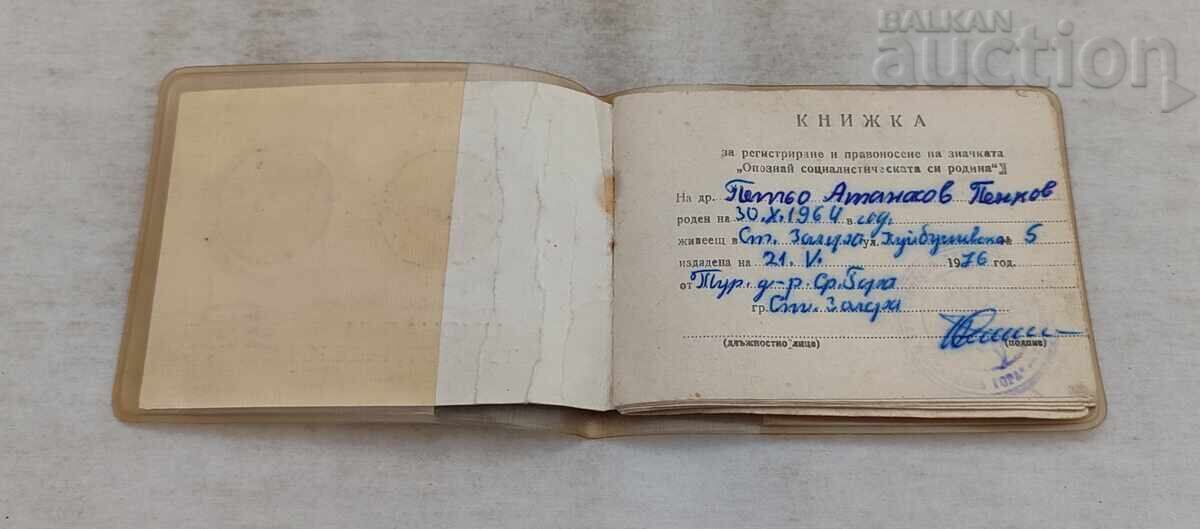 BALKAN
auction
КНИЖКА
за регистриране и правоносене на значката
„Опознай социалистическата си родина“
На др. Петьо Атанасов Пенков
роден на 30.X.1964 в год.
живеещ в Ст. Загора ул. Куйбишевска № 5
издадена на 21.V. 1976 год.
от Тур. д-р. Ср. Гора
гр. Ст. Загора
(длъжностно лице) (подпис)
ГОРА